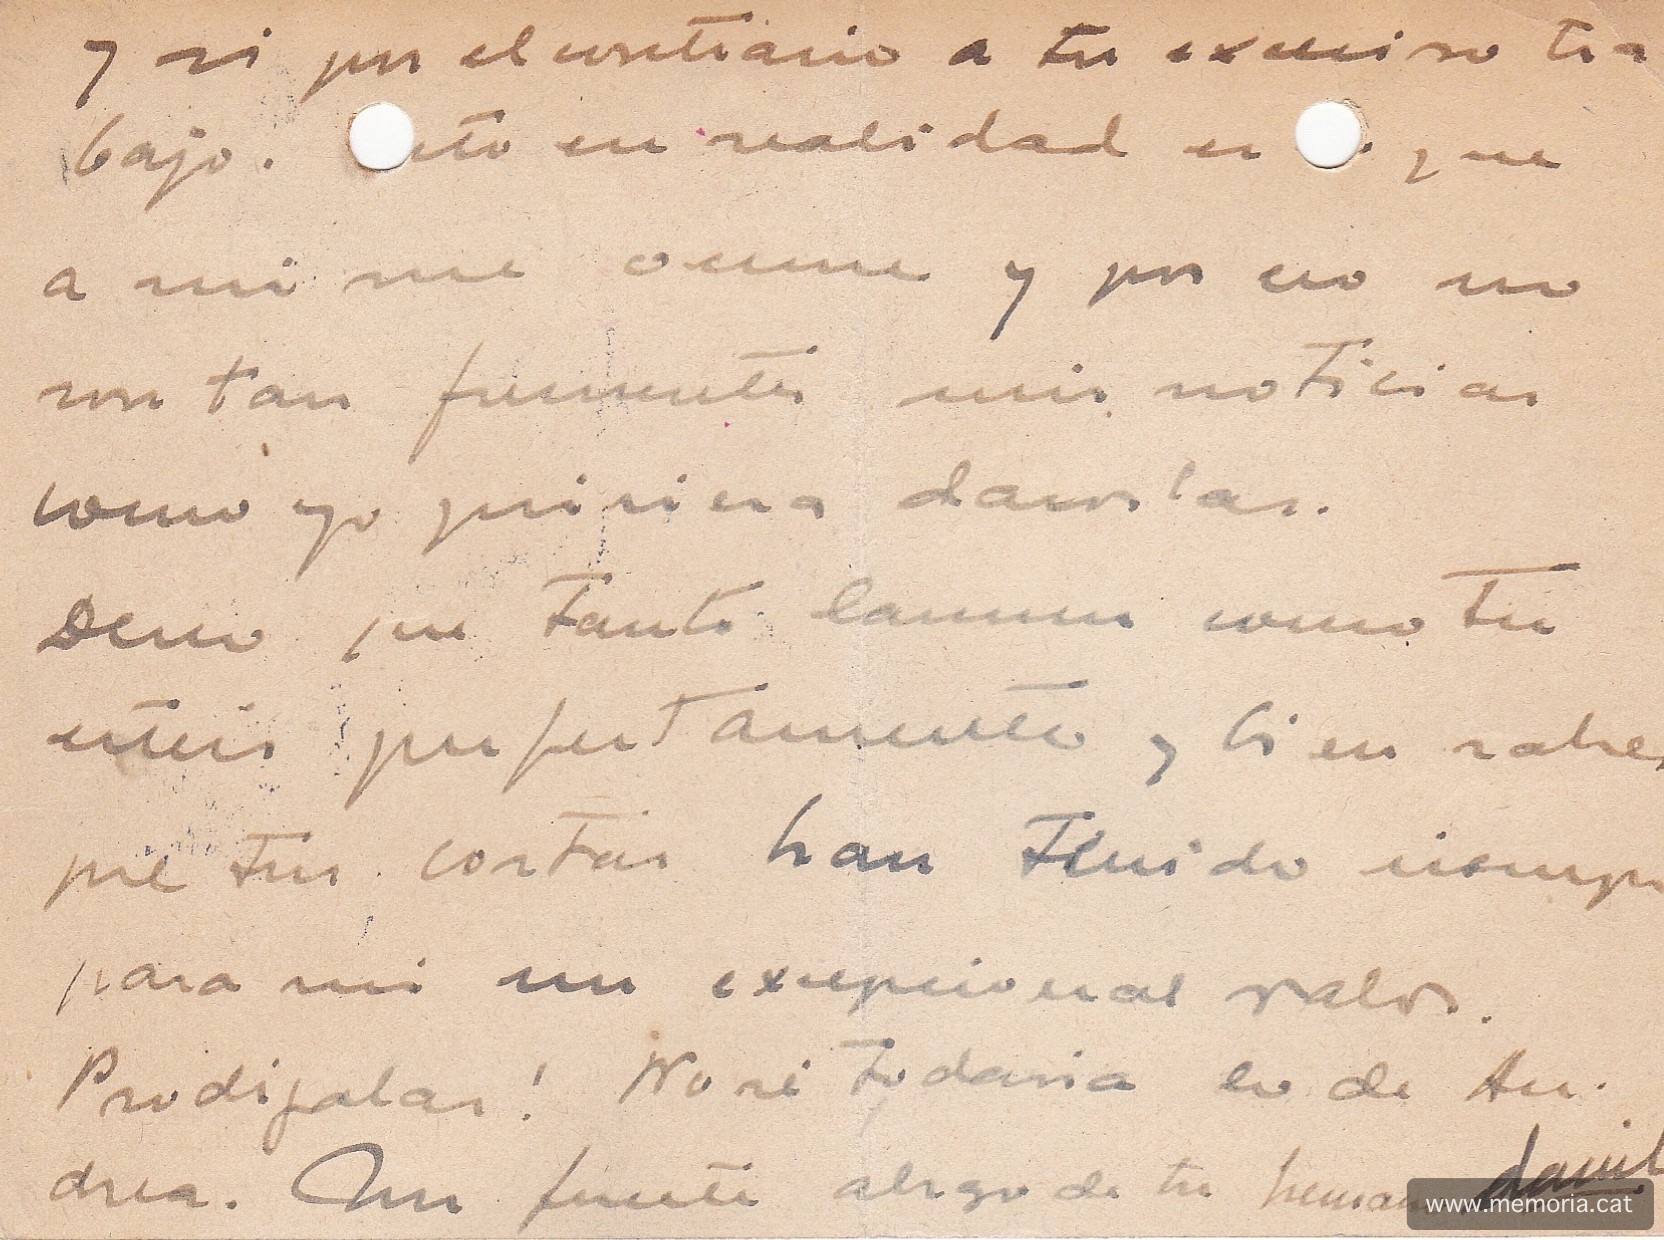 y si por el contrario a tu excesivo tra
bajo. esto en realidad es que
a mi me ocurre y por eso no
son tan frecuentes mis noticias
como yo quisiera daros las.
Deseo que tanto Carmen como tu
esteis perfectamente y bien sabes
que tus cortas han tenido siempre
para mi un excepcional valor.
Prodigalas! No sé todavia lo de An.
drea. Un fuerte abrazo de tu hermano David
www.memoria.cat